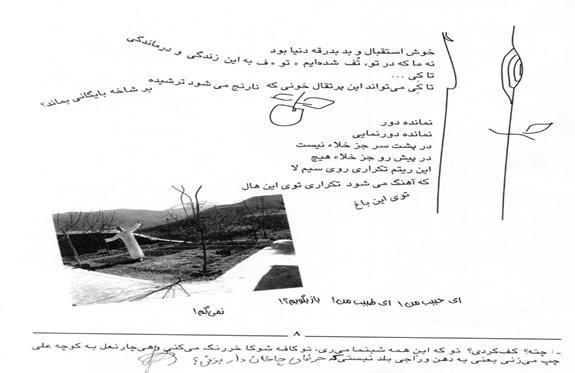 خوش استقبال و بد بدرقه دنیا بود
نه ما که در تو، تُف شده‌ایم * تو * ف به این زندگی و درماندگی
تا کی ...
تا کی می‌تواند این پرتقال خونی که نارنج می شود ترشیده بر شاخه بایگانی بماند؟
نمانده دور
نمانده دورنمایی
در پشت سر جز خلاء نیست
در پیش رو جز خلاء هیچ
این ریتم تکراری روی سیم لا
که آهنگ می شود تکراری توی این هال
توی این باغ
ای حبیب من! ای طبیب من! بازبگویم؟!
نمی‌گم!
۸
۱- چته؟ کف‌کردی؟ تو که این همه سینما می‌ری، تو کافه شوکا خررنگ می‌کنی و هی چارنعل به کوچه علی
چپ می‌زنی یعنی یه دهن وراجی بلد نیستی که حرفای خانمان دار بزنی؟